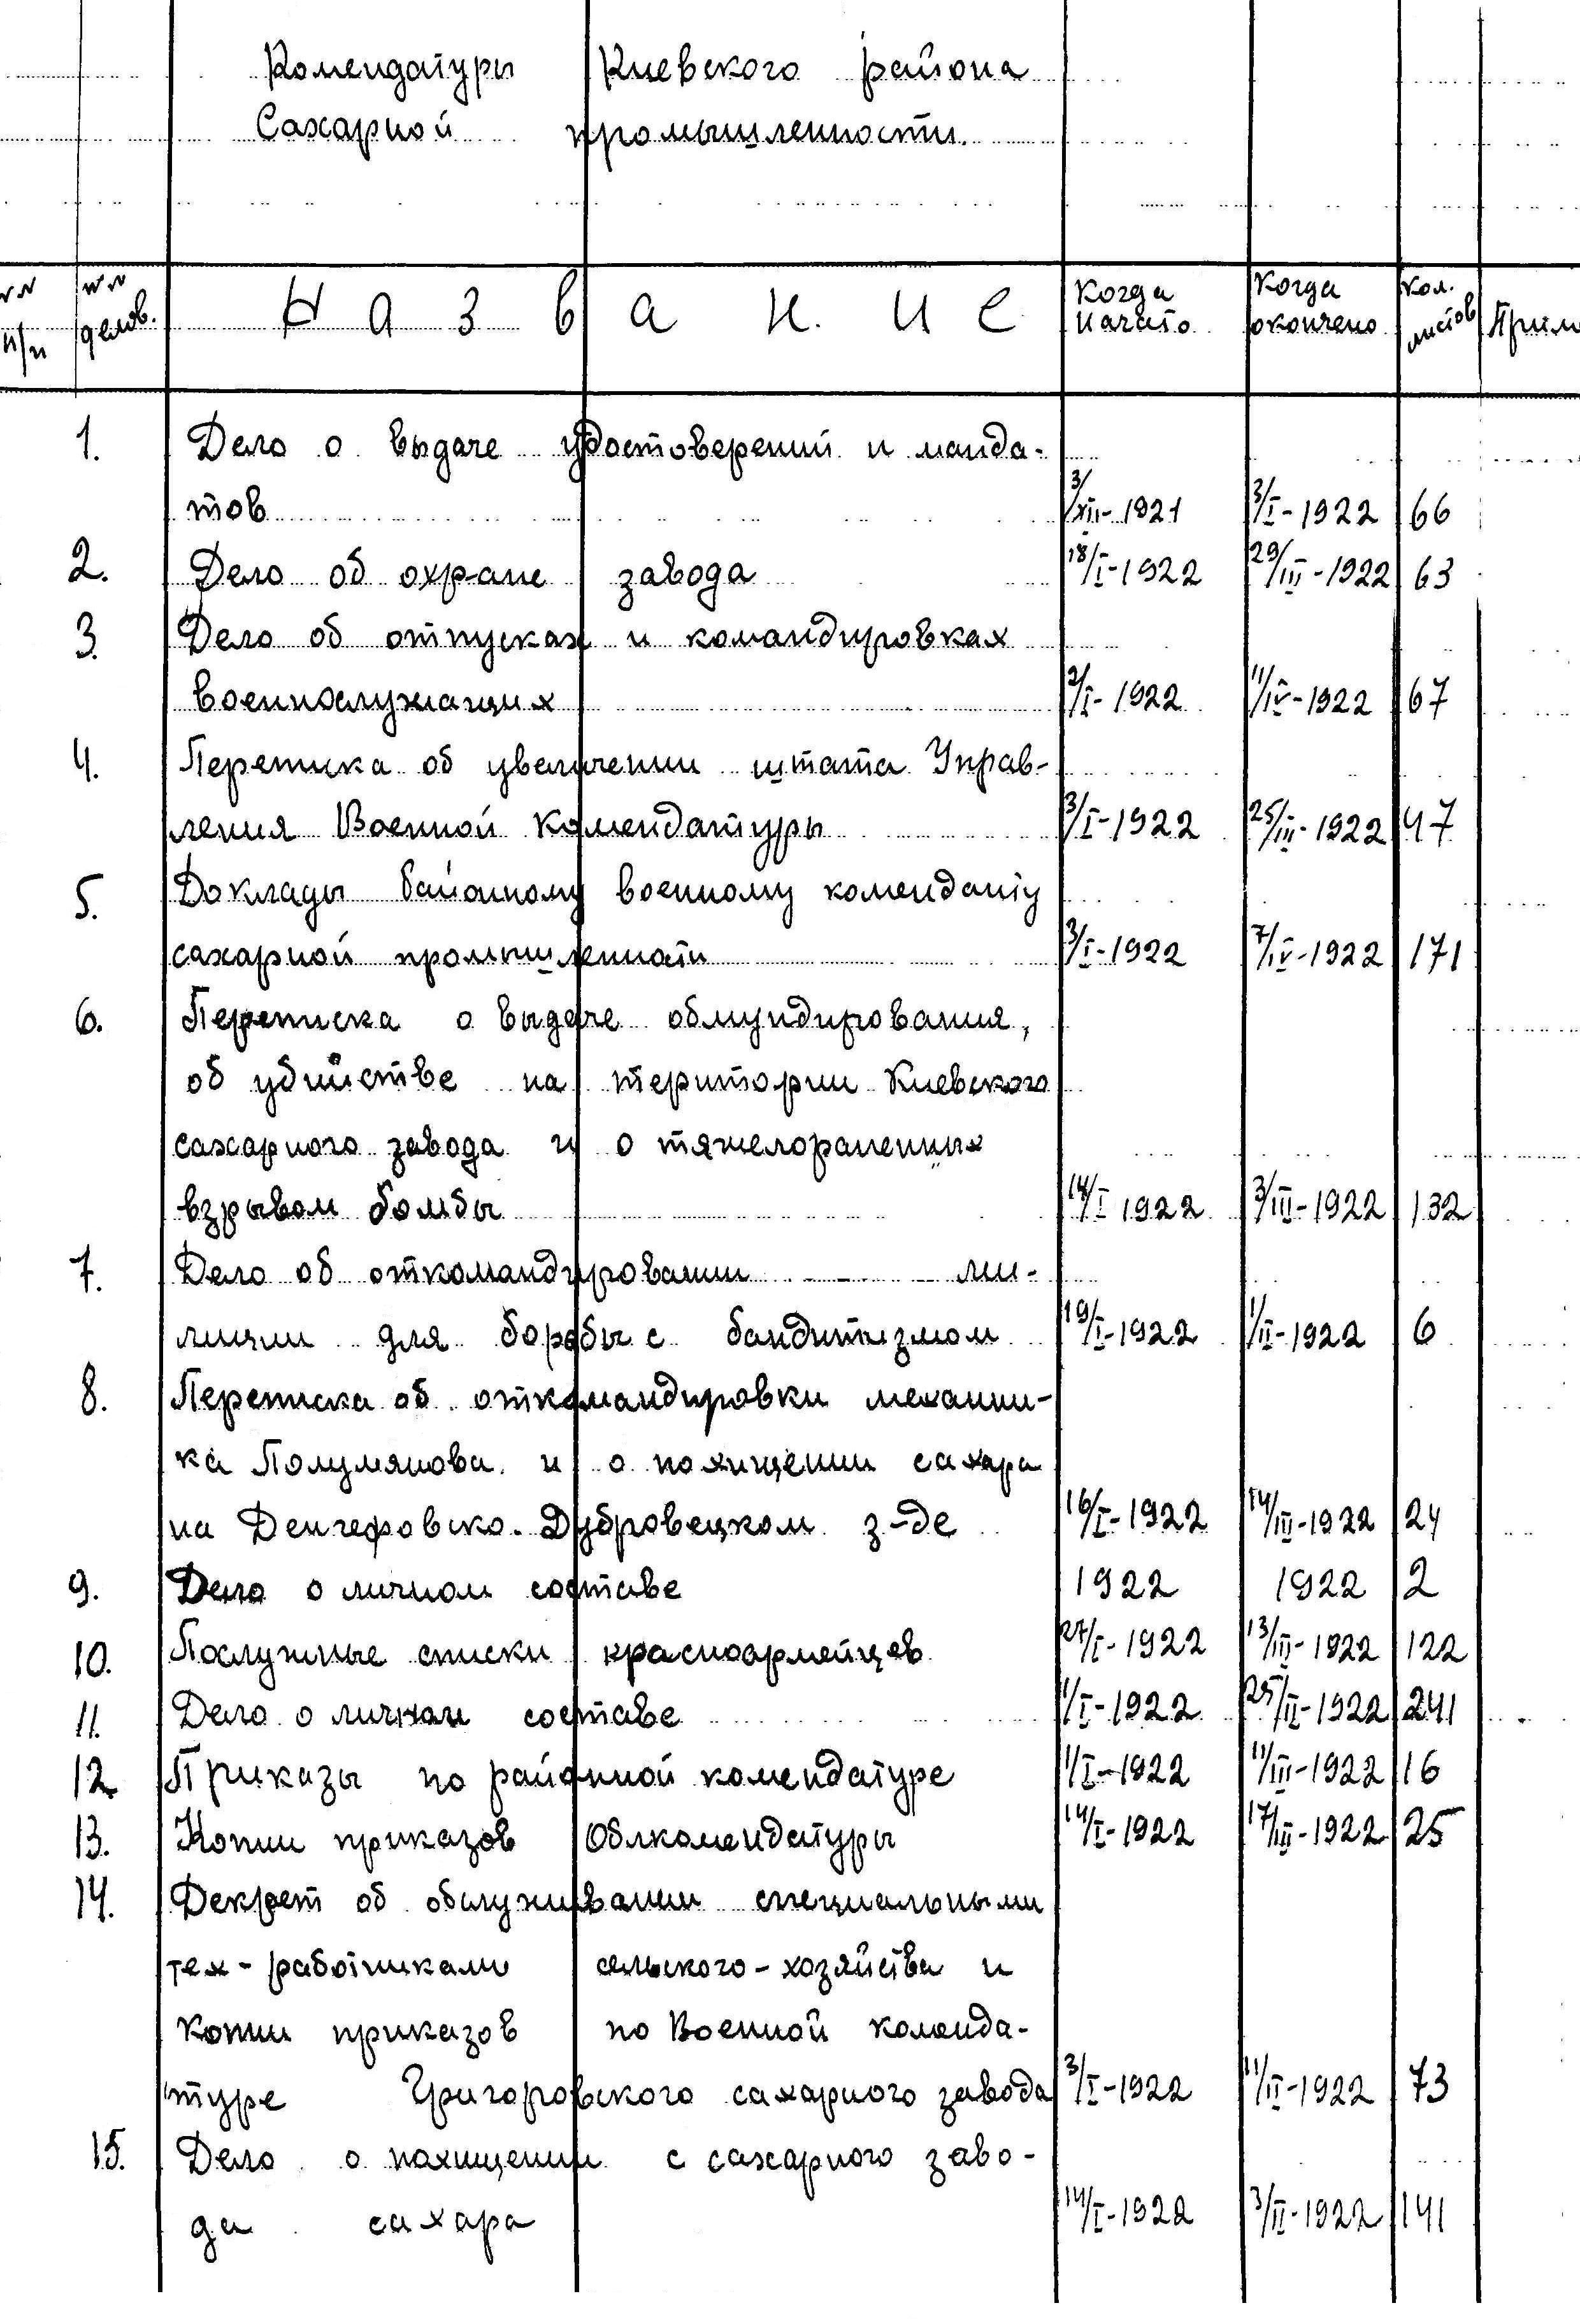 Комендатуры Киевского района
Сахарной промышленности.
№№ п/п
№№ делов.
Название
Когда начато
Когда окончено
Кол. листов
Прим
1. Дело о выдаче удостоверений и манда-
тов 3/XII-1921 3/I-1922 66
2. Дело об охране завода 18/I-1922 29/III-1922 63
3. Дело об отпусках и командировках
военнослужащих 2/I-1922 11/IV-1922 67
4. Переписка об увеличении штата Управ-
ления Военной Комендатуры 3/I-1922 25/III-1922 47
5. Доклады байонному военному коменданту
сахарной промышленности 3/I-1922 7/IV-1922 171
6. Переписка о выдаче обмундирования,
об убийстве на територии Киевского
сахарного завода и о тяжелораненных
взрывом бомбы 14/I 1922 3/III-1922 132
7. Дело об откомандировании ми-
лиции для борьбы с бандитизмом 19/I-1922 1/II-1922 6
8. Переписка об откомандировки механни-
ка Полумянова и о похищении сахара
на Денгефовско-Дубровецком з-де 16/I-1922 14/III-1922 24
9. Дело о личном составе 1922 1922 2
10. Послужные списки красноармейцев 27/I-1922 13/III-1922 122
11. Дело о личном составе 1/I-1922 25/II-1922 241
12. Приказы по районной комендатуре 1/I-1922 11/III-1922 16
13. Копии приказов Облкомендатуры 14/I-1922 17/III-1922 25
14. Декрет об обслуживании специальными
тех-работниками сельского-хозяйства и
копии приказов по Военной коменда-
туре Григоровского сахарного завода 3/I-1922 11/II-1922 73
15. Дело о похищении с сахарного заво-
да сахара 14/I-1922 3/II-1922 141